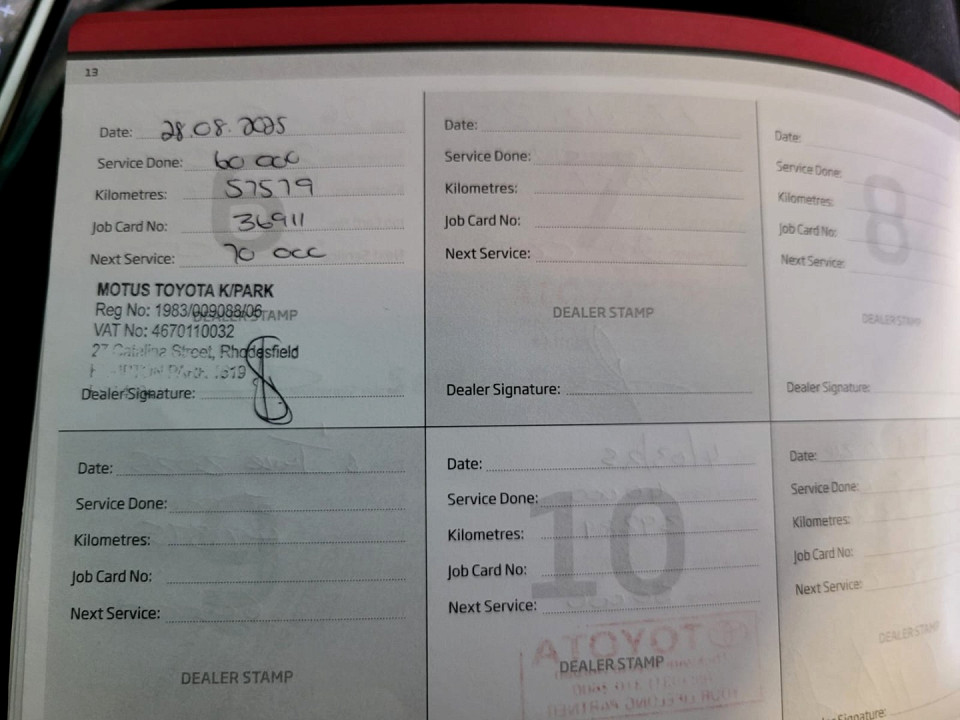 13
Date: 28.08.2025
Service Done: 60 000
Kilometres: 57579
Job Card No: 36911
Next Service: 70 000
6
MOTUS TOYOTA K/PARK
Reg No: 1983/009088/06
DEALER STAMP
VAT No: 4670110032
27 Catalina Street, Rhodesfield
1619
Dealer Signature:
Date:
Service Done:
Kilometres:
Job Card No:
Next Service:
7
DEALER STAMP
Dealer Signature:
Date:
Service Done:
Kilometres:
Job Card No:
Next Service:
8
DEALER STAMP
Dealer Signature:
Date:
Service Done:
Kilometres:
Job Card No:
Next Service:
9
DEALER STAMP
Date:
Service Done:
Kilometres:
Job Card No:
Next Service:
10
TOYOTA
DEALER STAMP
Date:
Service Done:
Kilometres:
Job Card No:
Next Service:
DEALER STAMP
Signature: